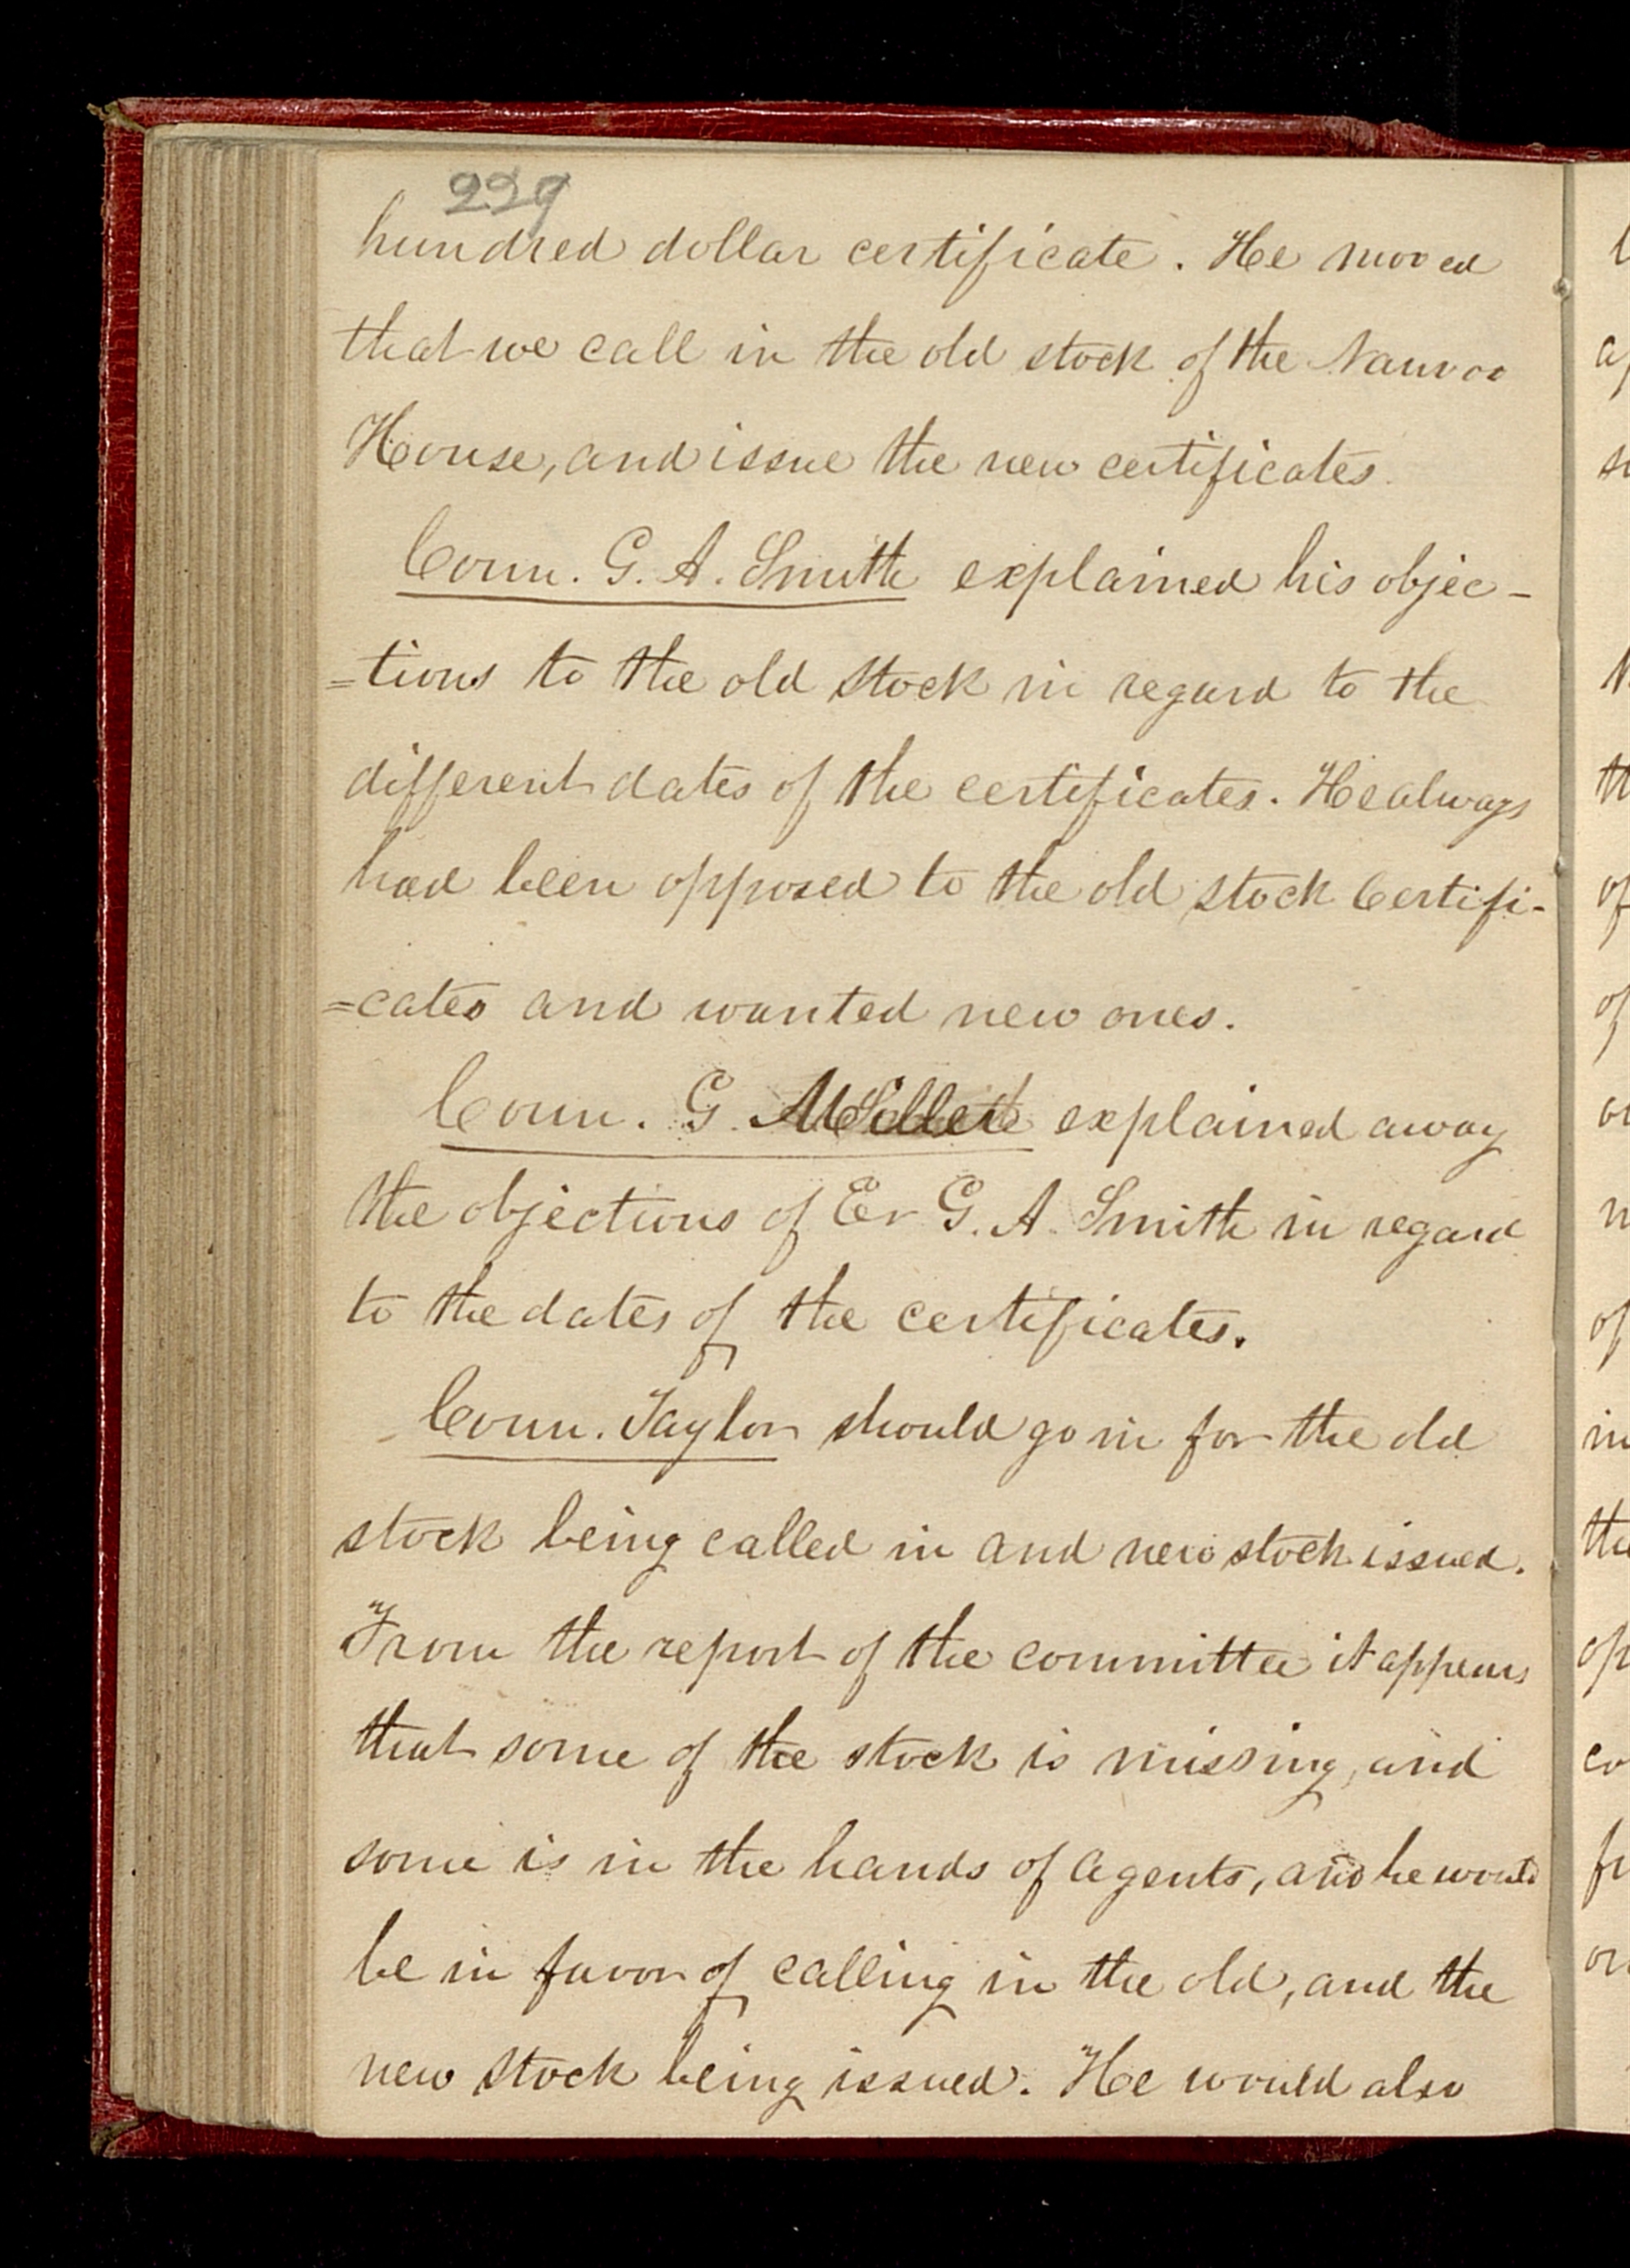 229
hundred dollar certificate. He moved
that we call in the old stock of the Nauvoo
House, and issue the new certificates.
Coun. G. A. Smith explained his objec-
=tions to the old stock in regard to the
different dates of the certificates. He always
had been opposed to the old stock Certifi-
=cates and wanted new ones.
Coun. G. Miller explained away
the objections of Er G. A. Smith in regard
to the dates of the certificates.
Coun. Taylor should go in for the old
stock being called in and new stock issued.
From the report of the committee it appears
that some of the stock is missing, and
some is in the hands of agents, and he would
be in favor of calling in the old, and the
new stock being issued. He would also